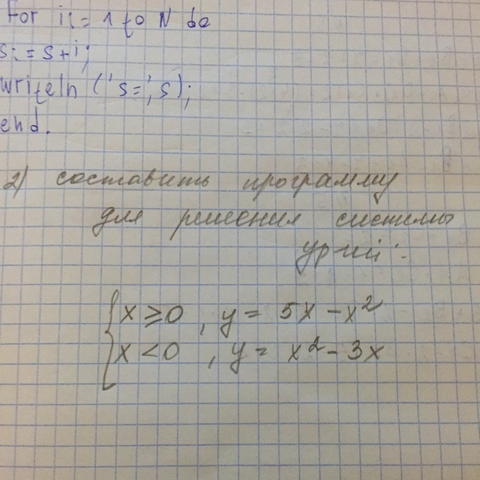 For i:= 1 to N do
s:= s+i;
writeln ('s=', s);
end.
2) составить программу
для решения системы
ур-ий:
x ≥ 0, y = 5x - x²
x < 0, y = x² - 3x